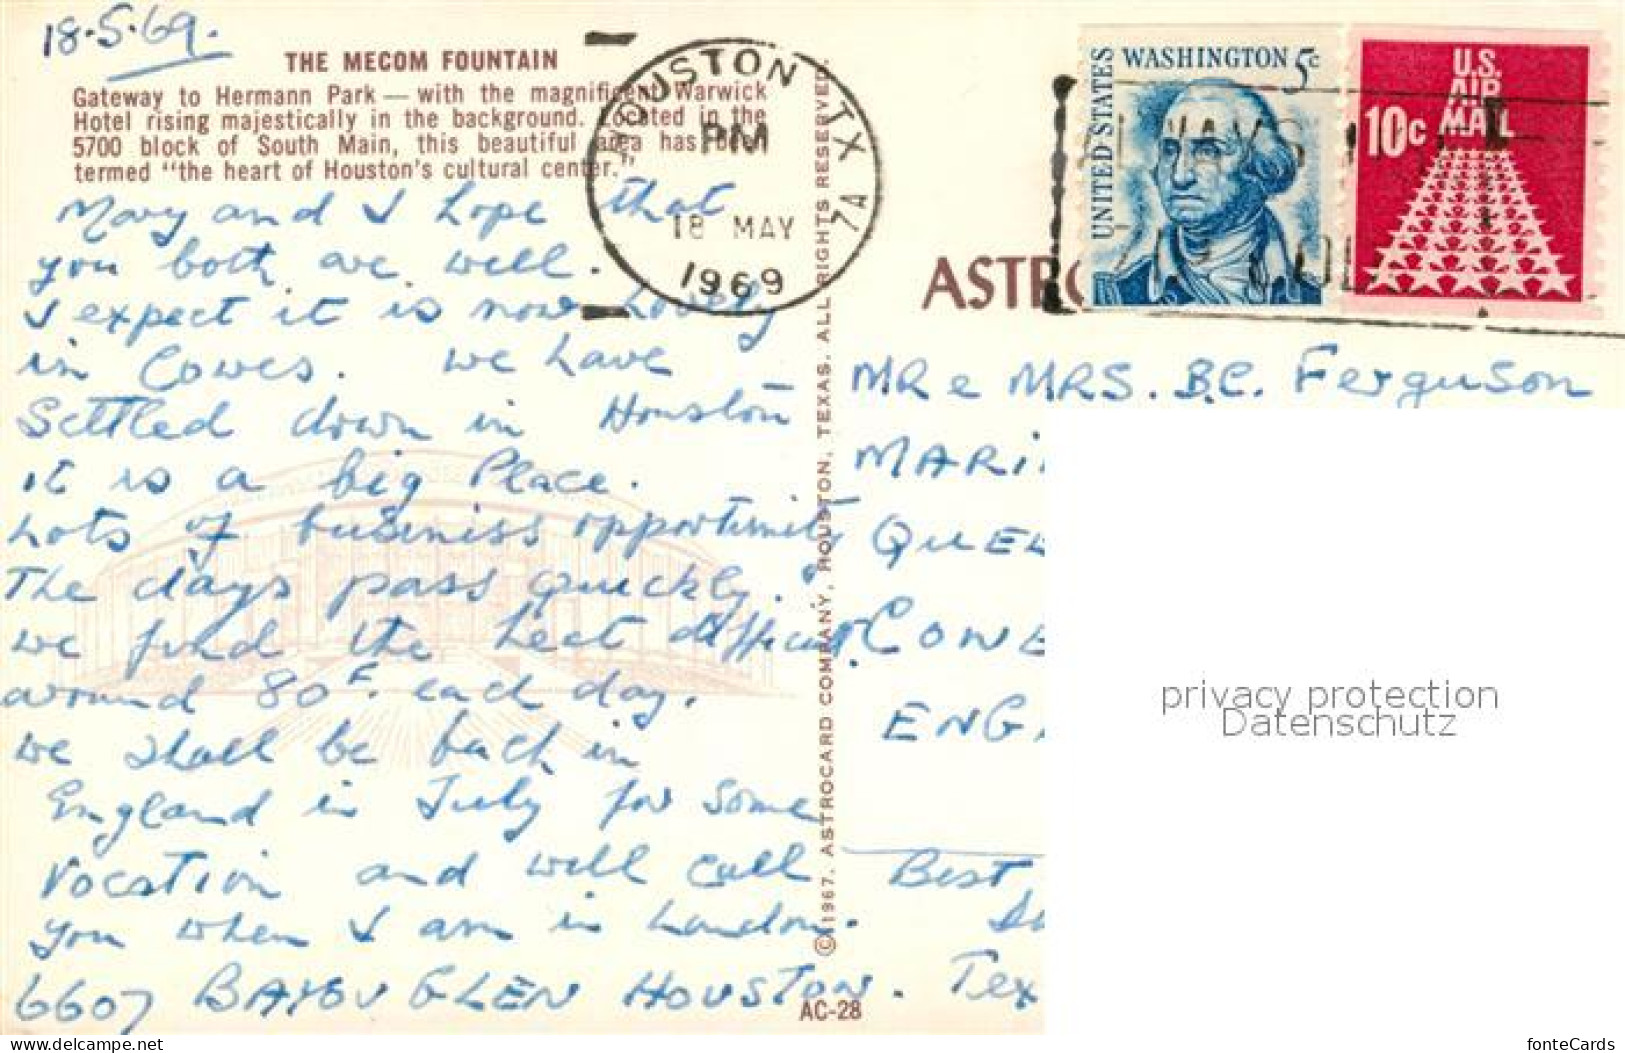 18.5.69.
THE MECOM FOUNTAIN
Gateway to Hermann Park — with the magnificent Warwick
Hotel rising majestically in the background. Located in the
5700 block of South Main, this beautiful area has been
termed "the heart of Houston's cultural center."
Mary and I hope that
you both are well.
I expect it is now lovely
in Cowes. We have
Settled down in Houston
it is a big Place.
Lots of business opportunity
The days pass quickly.
we find the heat difficult.
around 80 F. each day.
we shall be back in
England in July for some
vocation and will call
you when I am in London.
6607 BAYOU GLEN HOUSTON. Tex
AC-28
© 1967, ASTROCARD COMPANY, HOUSTON, TEXAS. ALL RIGHTS RESERVED.
HOUSTON TX
PM
18 MAY
1969
7A
ASTRO
UNITED STATES
WASHINGTON 5c
U.S.
AIR
MAIL
10c
MR e MRS. B.C. Ferguson
MARI
QUE
COWE
ENG
Best
privacy protection
Datenschutz
www.delcampe.net
fonteCards